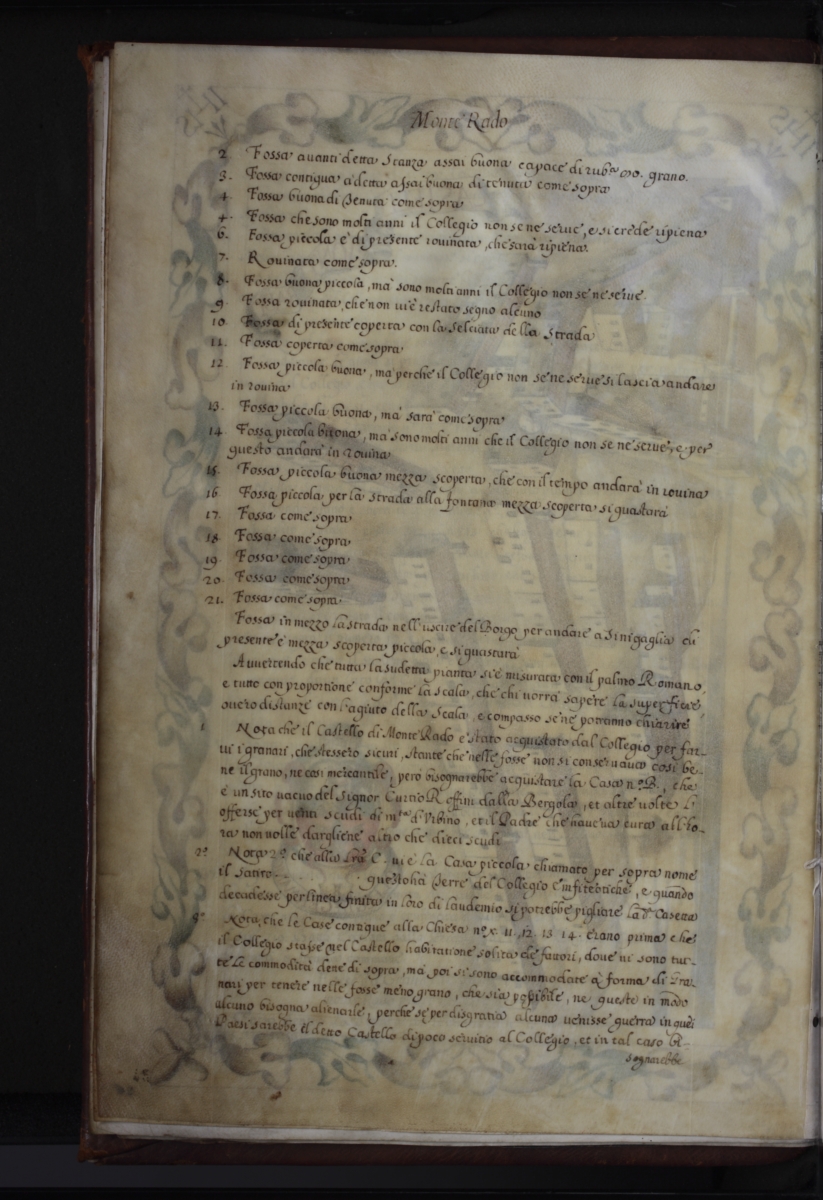 Monte Rado
2. Fossa auanti detta Stanza assai buona capace di rub.a 200. grano.
3. Fossa contigua à detta assai buona di tenuta come sopra
4. Fossa buona di Tenuta come sopra
4. Fossa che sono molti anni il Collegio non se ne serue, e si crede ripiena
6. Fossa piccola è di presente rouinata, che sarà ripiena.
7. Rouinata come sopra.
8. Fossa buona piccola, mà sono molti anni il Collegio non se ne serue
9. Fossa rouinata, che non ui è restato segno alcuno
10. Fossa di presente coperta con la Selciata della Strada
11. Fossa coperta come sopra
12. Fossa piccola buona, mà perche il Collegio non se ne serue si lascia andare
in rouina
13. Fossa piccola buona, mà sarà come sopra
14. Fossa piccola buona, mà sono molti anni che il Collegio non se ne serue, e per
questo andarà in rouina
15. Fossa piccola buona mezza scoperta, che con il tempo andarà in rouina
16. Fossa piccola per la strada alla fontana mezza scoperta si guastarà
17. Fossa come sopra
18. Fossa come sopra
19. Fossa come sopra
20. Fossa come sopra
21. Fossa come sopra
Fossa in mezzo la strada nell'uscire del Borgo per andare a Sinigaglia di
presente è mezza scoperta piccola, e si guastarà
Auuertendo che tutta la sudetta pianta si è misurata con il palmo Romano,
e tutto con proportione conforme la Scala, che chi uorrà sapere la superficie,
ouero distanze con l'agiuto della Scala, e compasso se ne potranno chiarire
1. Nota che il Castello di Monte Rado è stato acquistato dal Collegio per far-
ui i granari, che stessero sicuri, stante che nelle fosse non si conseruaua così be-
ne il grano, ne così mercantile, però bisognarebbe acquistare la Casa n.o B., che
è un sito uacuo del Signor Curtio Ruffini dalla Bergola, et altre uolte li
offerse per uenti scudi di m.ta d'Vrbino, et il Padre che haueua cura allho-
ra non uolle dargliene altro che dieci scudi
2.a Nota 2.o che alla lr̃a C. ui è la Casa piccola chiamato per sopra nome
il Santo . . . . . questo hà Terre del Collegio Enfiteotiche, e quando
decadesse per linea finita in loro di laudemio si potrebbe pigliare la d.a Casetta
3.a Nota, che le Case contigue alla Chiesa n.o x. 11. 12. 13. 14. erano prima che
il Collegio stasse nel Castello habitatione solita de fattori, doue ui sono tut-
te le commodità dette di sopra, mà poi si sono accommodate à forma di Gra-
nari per tenere nelle fosse meno grano, che sia possibile, ne queste in modo
alcuno bisogna alienarle, perche se per disgratia alcuna uenisse guerra in quei
Paesi sarebbe il detto Castello di poco seruitio al Collegio, et in tal caso bi-
sognarebbe